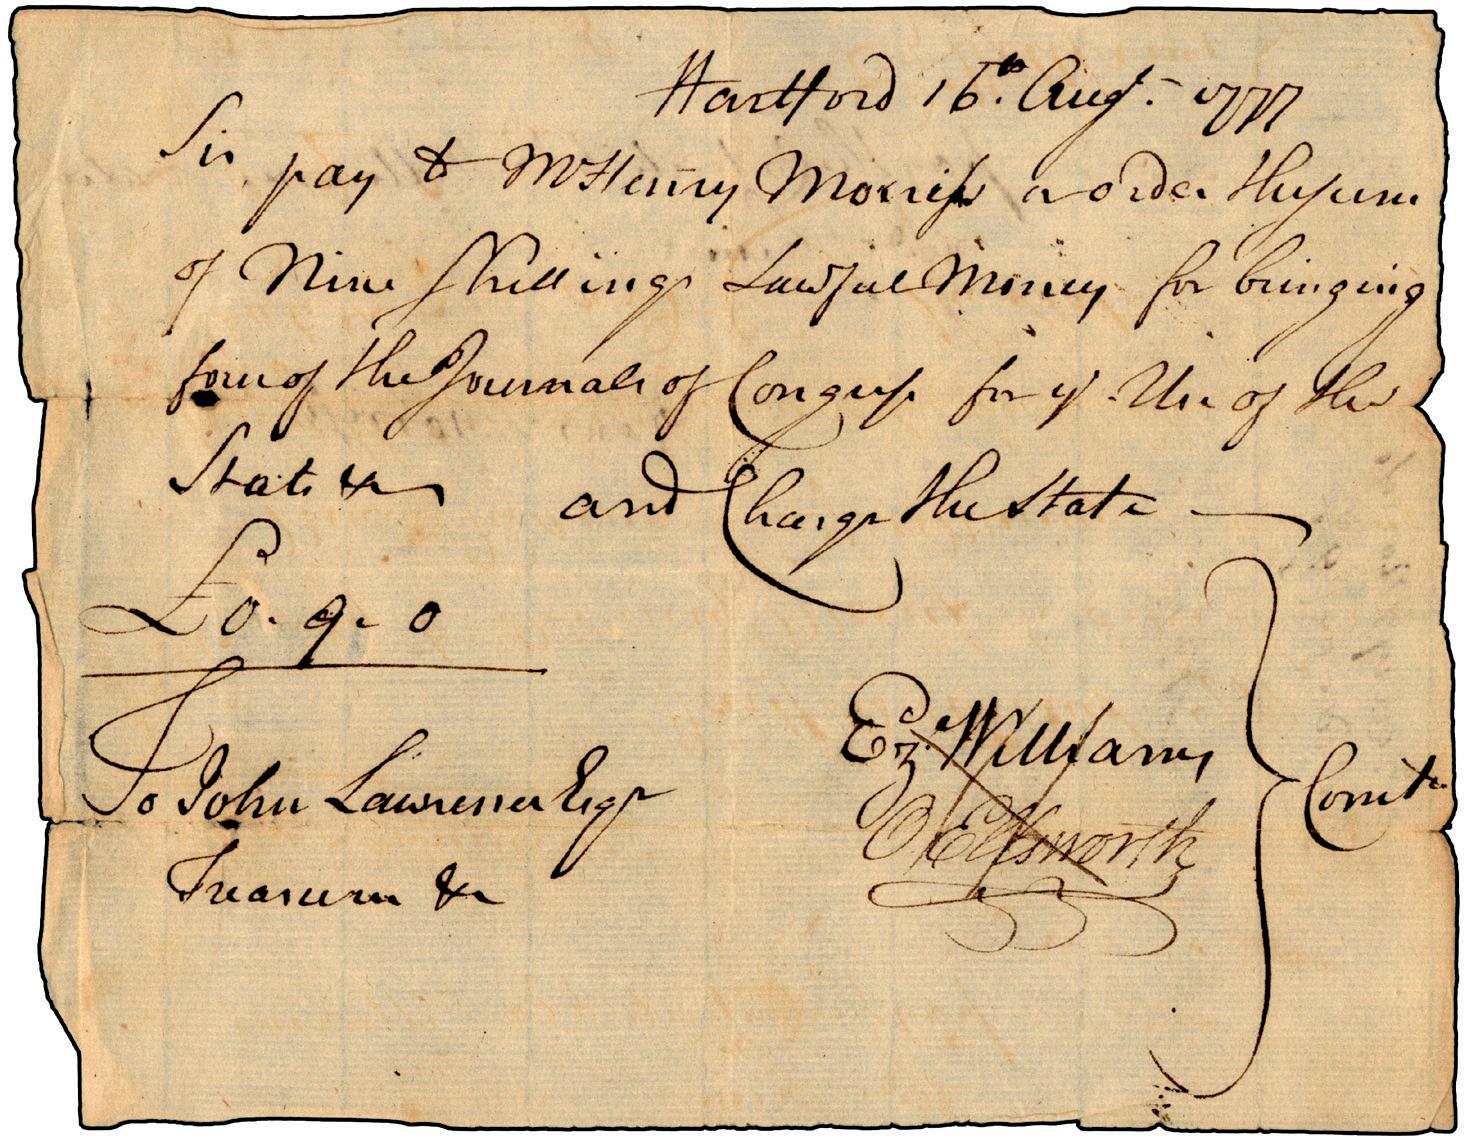 Hartford 16th. Augt. 1777
Sir
pay to Mr Henry Morriss or order the sum
of Nine Shillings Lawful Money for bringing
four of the Journals of Congress for ye. Use of the
State &c and Charge the State
£0. 9. 0
Ez. Williams
O Ellsworth
Comtee
To John Lawrence Esqr
Treasurer &c